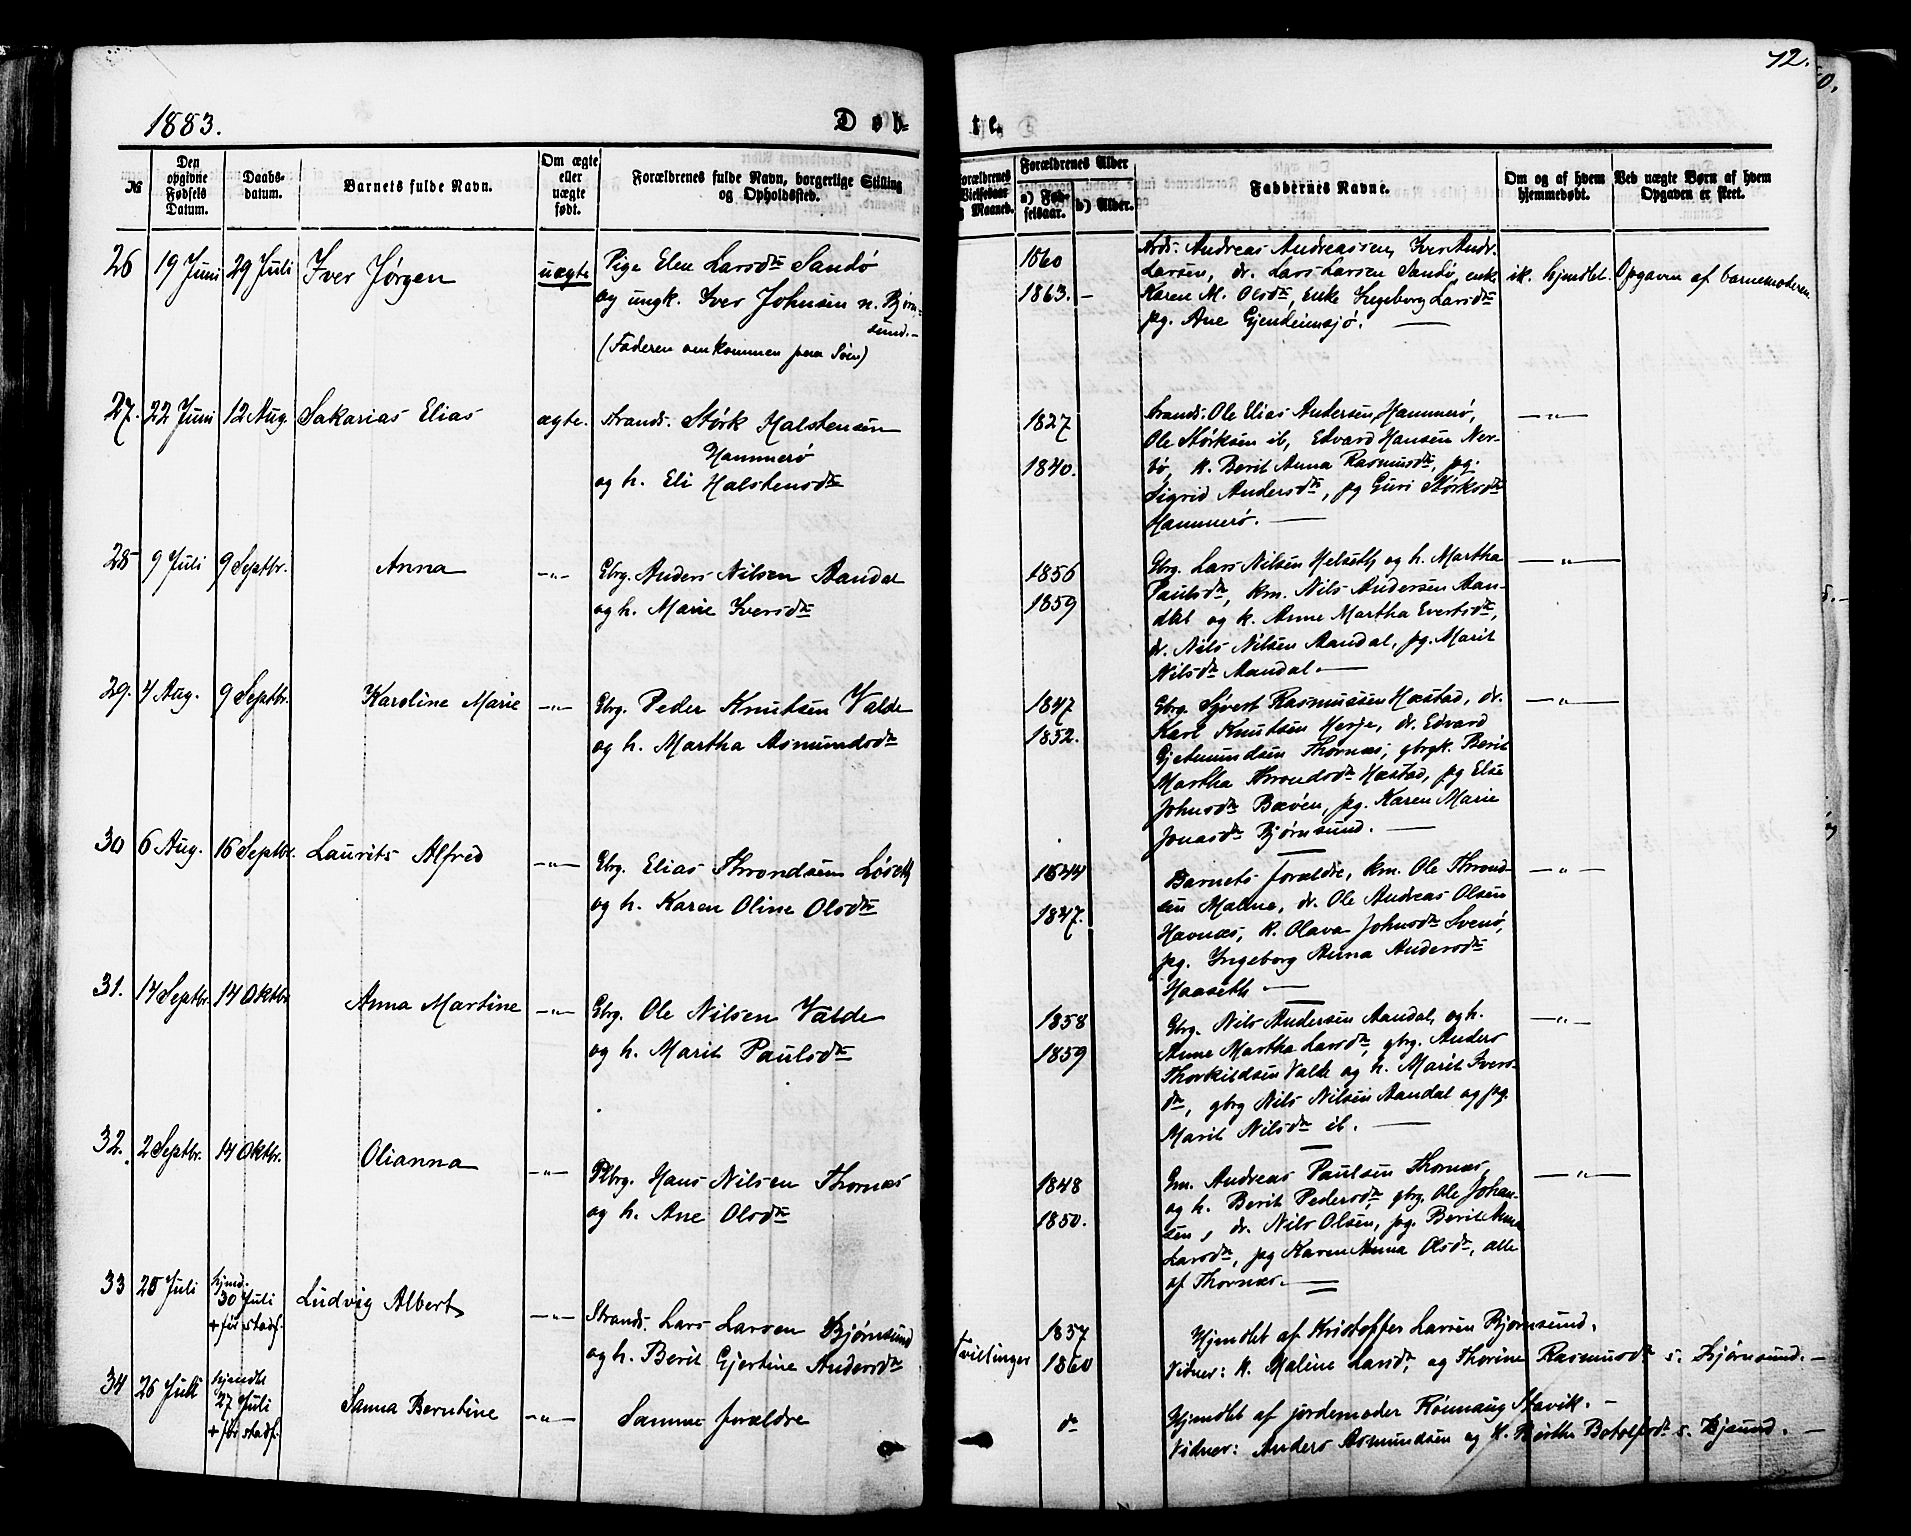 72.
1883.
Døb-
te.
№
Den opgivne Fødsels Datum.
Daabs-datum.
Barnets fulde Navn.
Om ægte eller uægte født.
Forældrenes fulde Navn, borgerlige Stilling og Opholdssted.
Forældrenes Vielsesaar og Maaned.
Forældrenes Alder
a) Fød-selsaar.
b) Alder.
Faddernes Navne.
Om og af hvem hjemmedøbt.
Ved uægte Børn af hvem Opgaven er skeet.
26 19 Juni 29 Juli Iver Jørgen uægte Pige Elen Larsdtr Sandø
og ungk. Iver Johnsen n. Bjørn-
sund.-
(Faderen omkommen paa Søen)
1860
1863. -
Strds. Andreas Andreassen, Iver Andr.
Larsen, dr. Lars Larsen Sandø, enke
Karen M. Olsdtr, Enke Ingeborg Larsdtr
pg. Ane Gjendemsjø. —
ik. hjemdbt. Opgaven af barnemoderen
27. 22 Juni 12 Aug. Sakarias Elias ægte. Strands. Størk Halstensen
Hammerø
og h. Eli Halstensdtr
1827
1840.
Strands. Ole Elias Andersen Hammerø,
Ole Størksen ib, Edvard Hansen Ner-
bø, k. Berit Anna Rasmusdtr, pg.
Sigrid Andersdtr, pg Guri Størksdtr
Hammerø. —
—"—
28 9 Juli 9 Septbr. Anna —"— Gbrg. Anders Nilsen Aandal
og h. Marie Iversdtr
1856
1859
Gbrg. Lars Nilsen Helseth og h. Martha
Paulsdtr, km. Nils Andersen Aan-
dal og k. Anne Martha Evertsdtr,
dr. Nils Nilsen Aandal, pg. Marit
Nilsdtr Aandal. —
—"—
29. 4 Aug. 9 Septbr. Karoline Marie —"— Gbrg. Peder Knutsen Valde
og h. Martha Asmundsdtr
1847
1852.
Gbrg. Syvert Rasmussen Hæstad, dr.
Karl Knutsen Herje, dr. Edvard
Gjetmundsen Thornæs, gbrgk. Berit
Martha Throndsdtr Hæstad, pg Else
Johnsdtr Bævøen, pg. Karen Marie
Jonasdtr Bjørnsund. —
—"—
30 6 Aug. 16 Septbr. Laurits Alfred —"— Gbrg. Elias Throndsen Løseth
og h. Karen Oline Olsdtr
1844
1847.
Barnets forældre, km. Ole Thrond-
sen Malme, dr. Ole Andreas Olsen
Havnæs, k. Olava Johnsdtr Svenø,
pg. Ingeborg Anna Andersdtr
Haaseth —
—"—
31. 14 Septbr. 14 Oktbr. Anna Martine —"— Gbrg. Ole Nilsen Valde
og h. Marit Paulsdtr
1858
1859
Gbrg. Nils Andersen Aandal, og h.
Anne Martha Larsdtr, gbrg. Anders
Thorkildsen Valde og h. Marit Ivers-
dtr, gbrg Nils Nilsen Aandal og pg.
Marit Nilsdtr ib. —
—"—
32. 2 Septbr. 14 Oktbr. Olianna —"— Plbrg. Hans Nilsen Thornæs
og h. Ane Olsdtr
1848
1850.
Gm. Andreas Paulsen Thornæs,
og h. Berit Pedersdtr, gbrg. Ole Johan-
sen, dr. Nils Olsen, pg. Berit Anna
Larsdtr, pg Karen Anna Olsdtr, alle
af Thornæs. —
—"—
33 25 Juli hjemd. 30 Juli + før stadf. Ludvig Albert —"— Strands. Lars Larsen Bjørnsund
og h. Berit Gjertine Andersdtr
Tvillinger
1857
1860
Hjemdbt af Kristoffer Larsen Bjørnsund.
Vidner: k. Maline Larsdtr og Thorine Rasmusdtr s. Bjørnsund. —
34 26 Juli hjemdbt 27 Juli + før stadf. Sanna Berntine —"— Samme forældre
do
Hjemdbt af jordemoder Rønnaug Stavik. —
Vidner: Anders Asmundsen og k. Berthe Botolfsdtr s. Bjsund. —